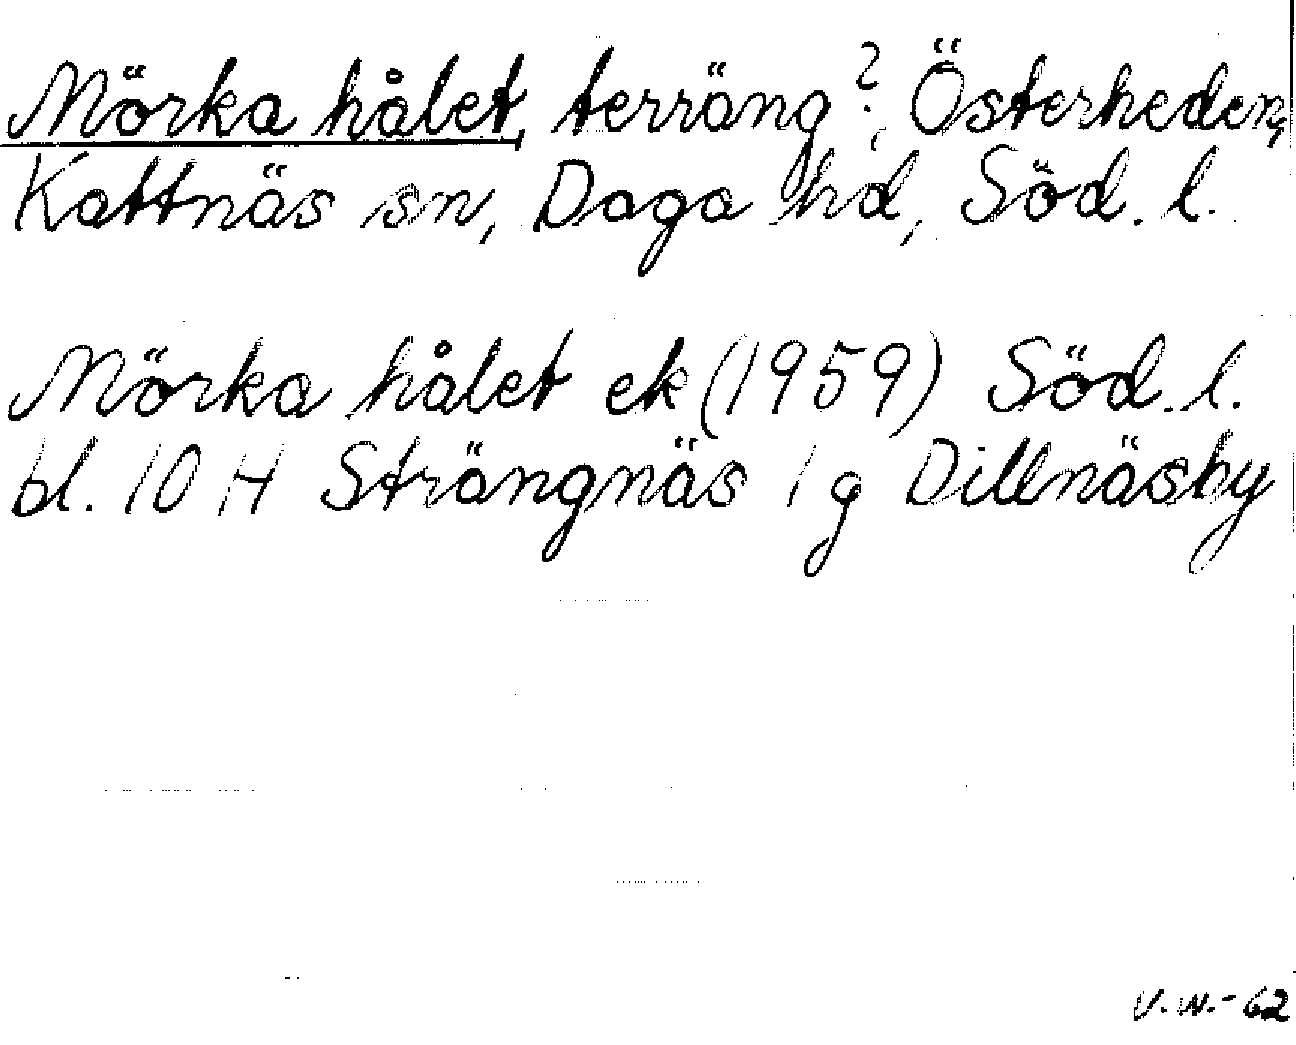 Mörka hålet, terräng?, Österheden,
Kattnäs sn, Daga hd, Söd. l.
Mörka hålet ek (1959) Söd. l.
bl. 10 H Strängnäs 1 g Dillnäsby
V.W.-62